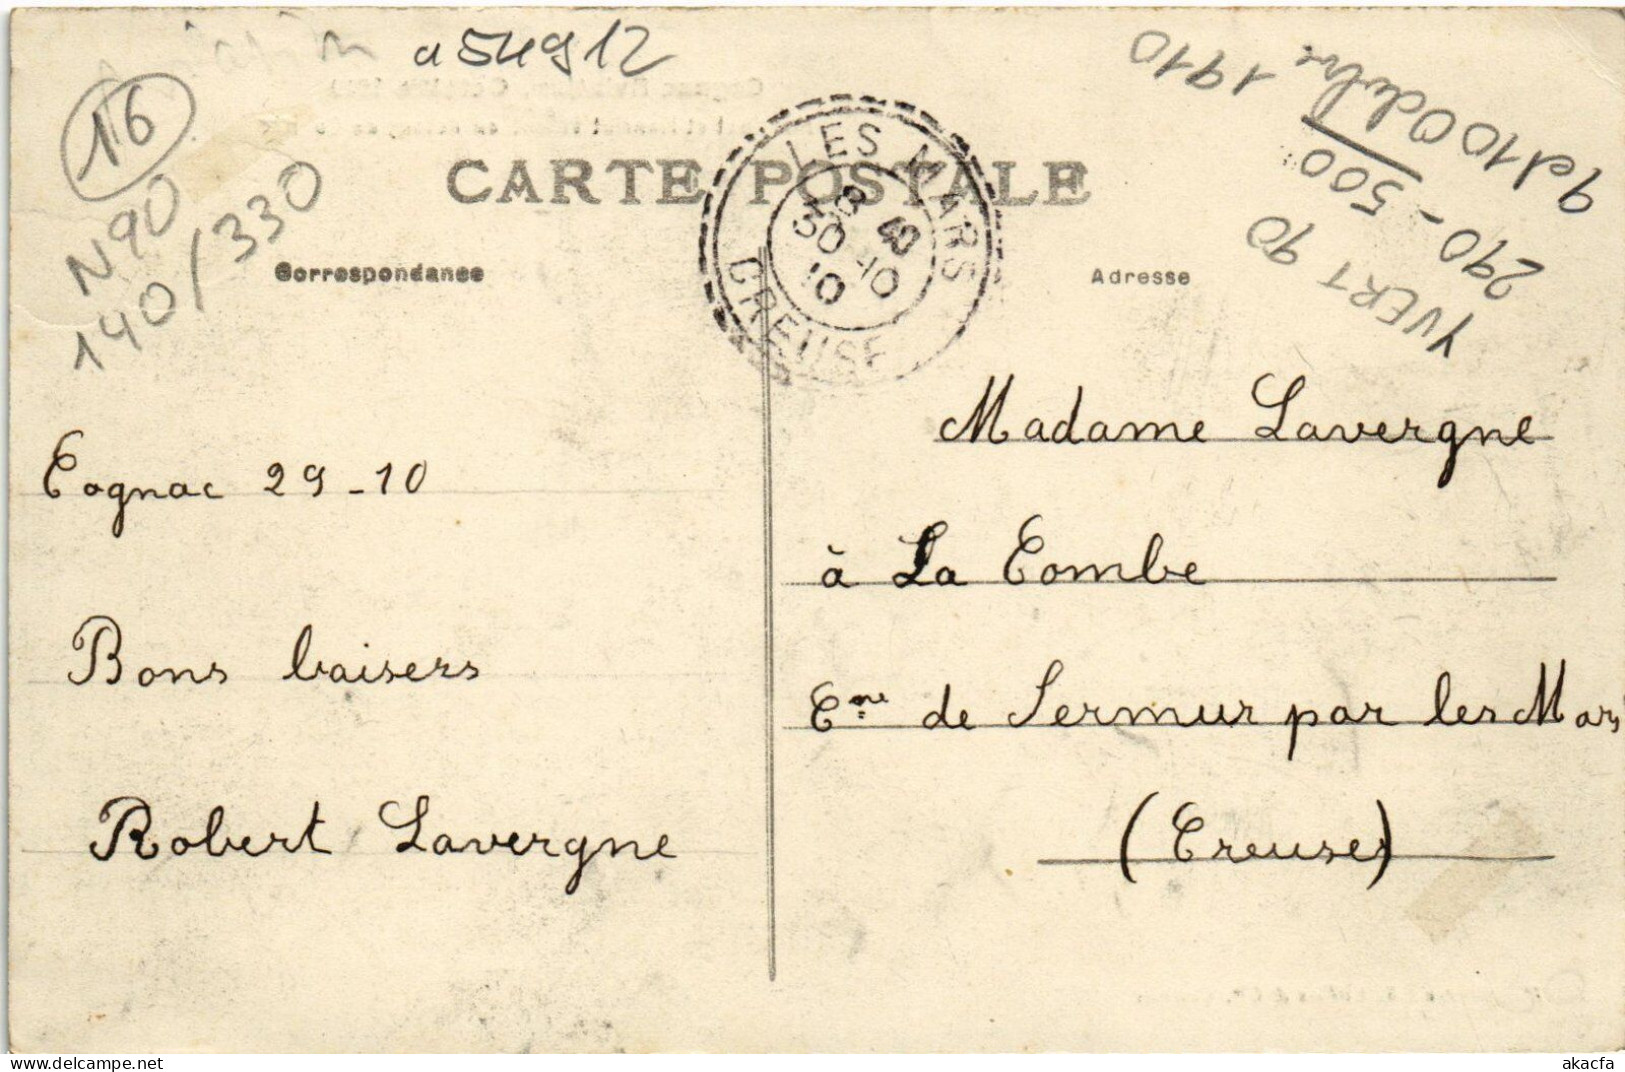 a54912
16
N90
140/330
9 et 10 Octobre 1910
290-500
YVERT 90
CARTE POSTALE
LES MARS
8 40
30 -10
10
CREUSE
Correspondance
Adresse
Cognac 29-10
Bons baisers
Robert Lavergne
Madame Lavergne
à La Combe
Cne de Sermur par les Mars
(Creuse)
delcampe.net
akacfa